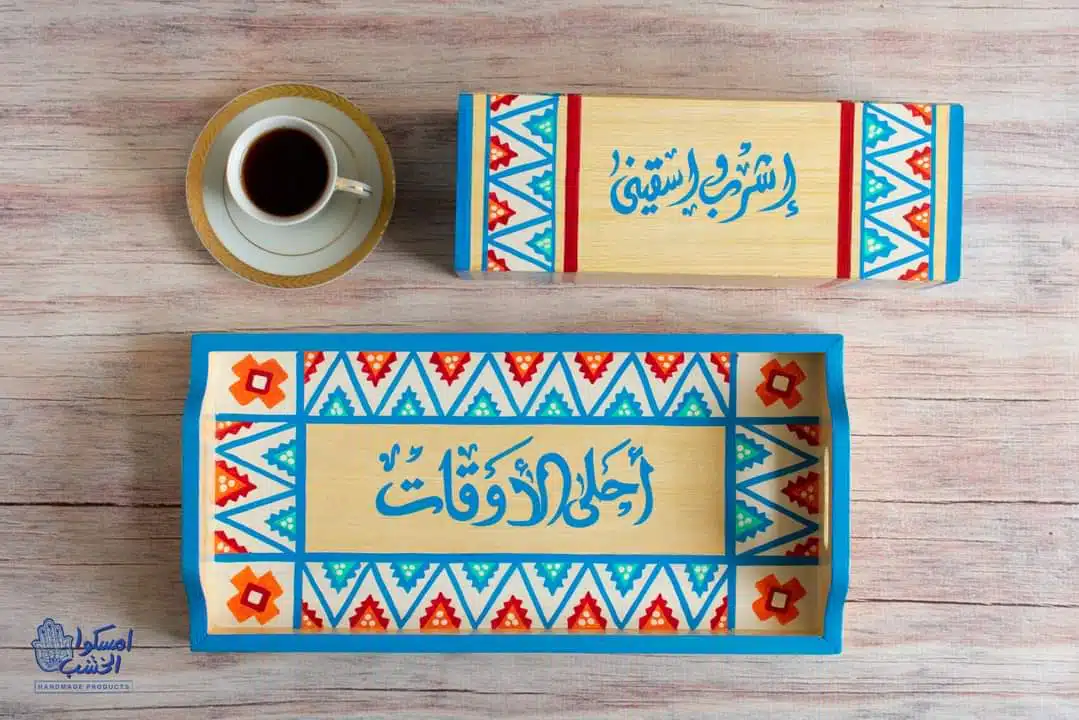 إشرب و إسقيني
أحلى الأوقات
امسكوا
الخشب
HANDMADE PRODUCTS